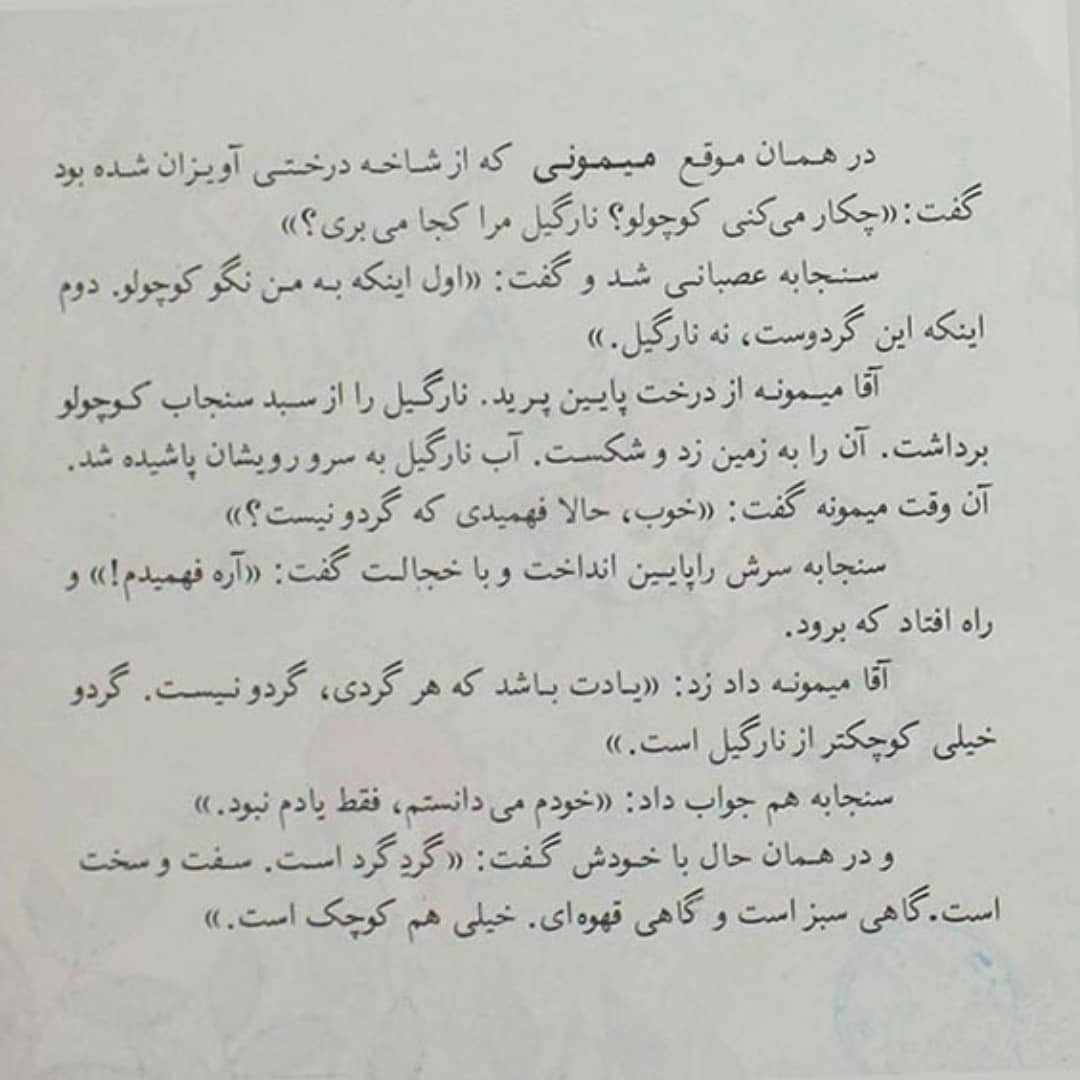 در همان موقع میمونی که از شاخه درختی آویزان شده بود
گفت: «چکار می‌کنی کوچولو؟ نارگیل مرا کجا می‌بری؟»
سنجابه عصبانی شد و گفت: «اول اینکه به من نگو کوچولو. دوم
اینکه این گردوست، نه نارگیل.»
آقا میمونه از درخت پایین پرید. نارگیل را از سبد سنجاب کوچولو
برداشت. آن را به زمین زد و شکست. آب نارگیل به سرو رویشان پاشیده شد.
آن وقت میمونه گفت: «خوب، حالا فهمیدی که گردو نیست؟»
سنجابه سرش راپایین انداخت و با خجالت گفت: «آره فهمیدم!» و
راه افتاد که برود.
آقا میمونه داد زد: «یادت باشد که هر گردی، گردو نیست. گردو
خیلی کوچکتر از نارگیل است.»
سنجابه هم جواب داد: «خودم می‌دانستم، فقط یادم نبود.»
و در همان حال با خودش گفت: «گردِ گرد است. سفت و سخت
است.گاهی سبز است و گاهی قهوه‌ای. خیلی هم کوچک است.»